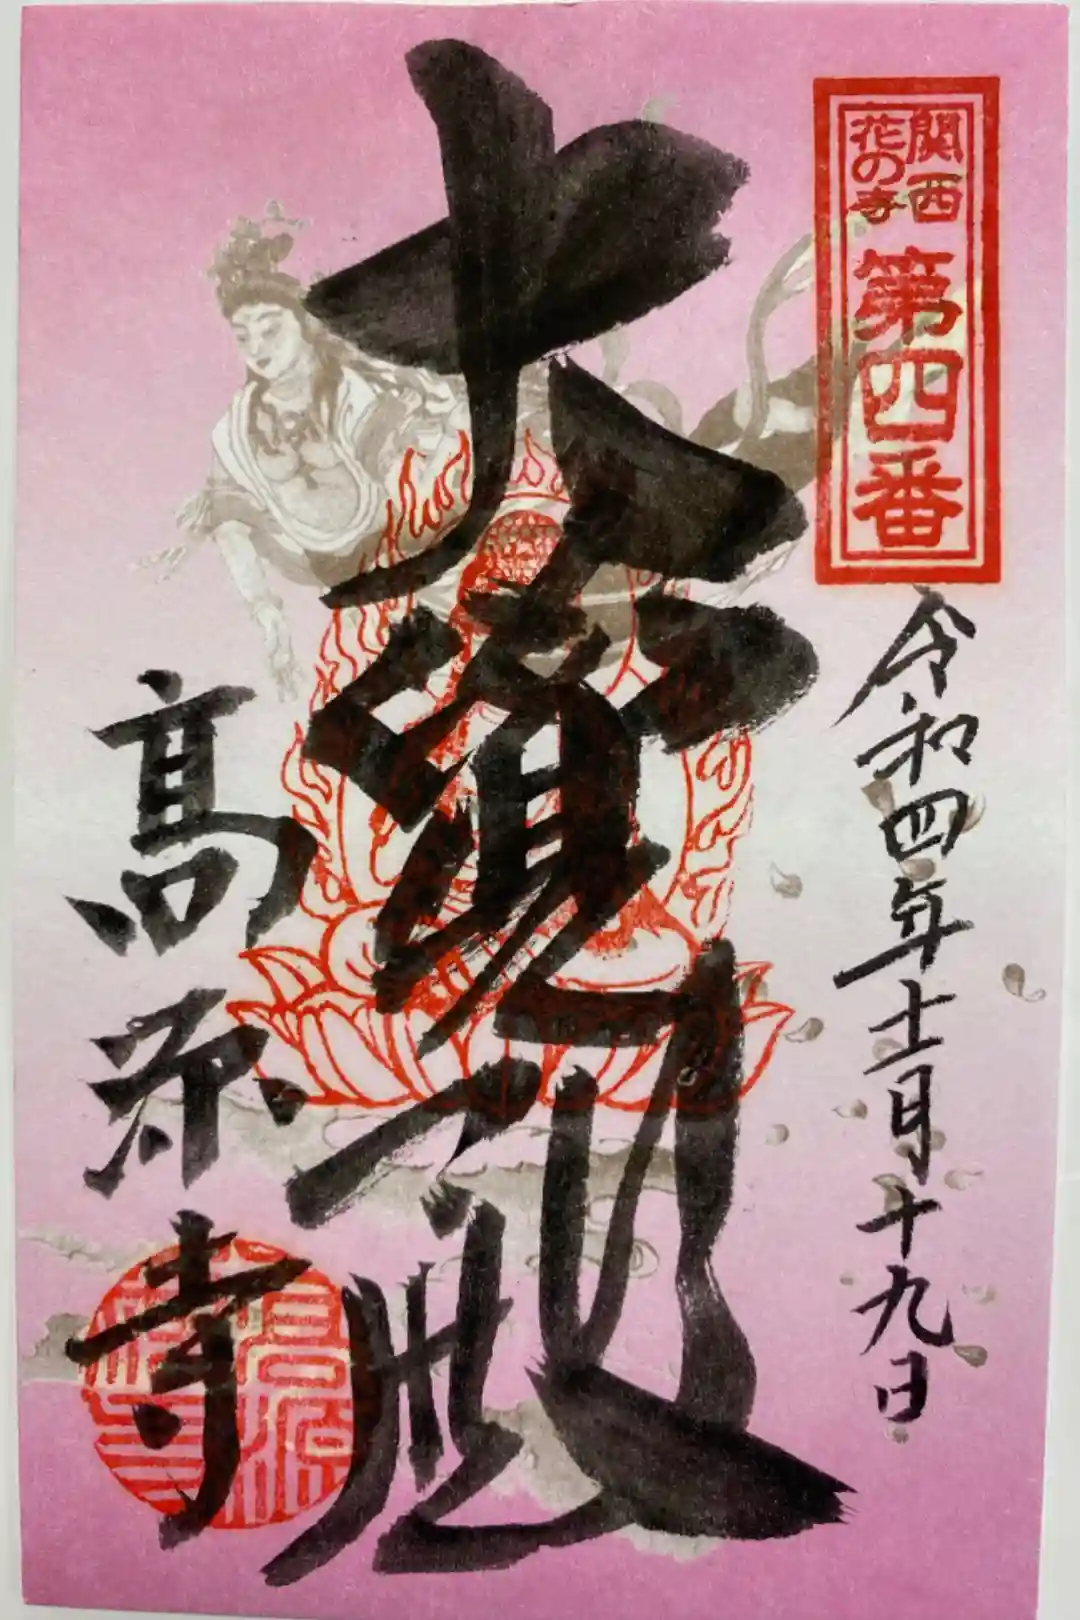 関西
花の寺
第四番
令和四年十一月十九日
大覚殿
高源寺